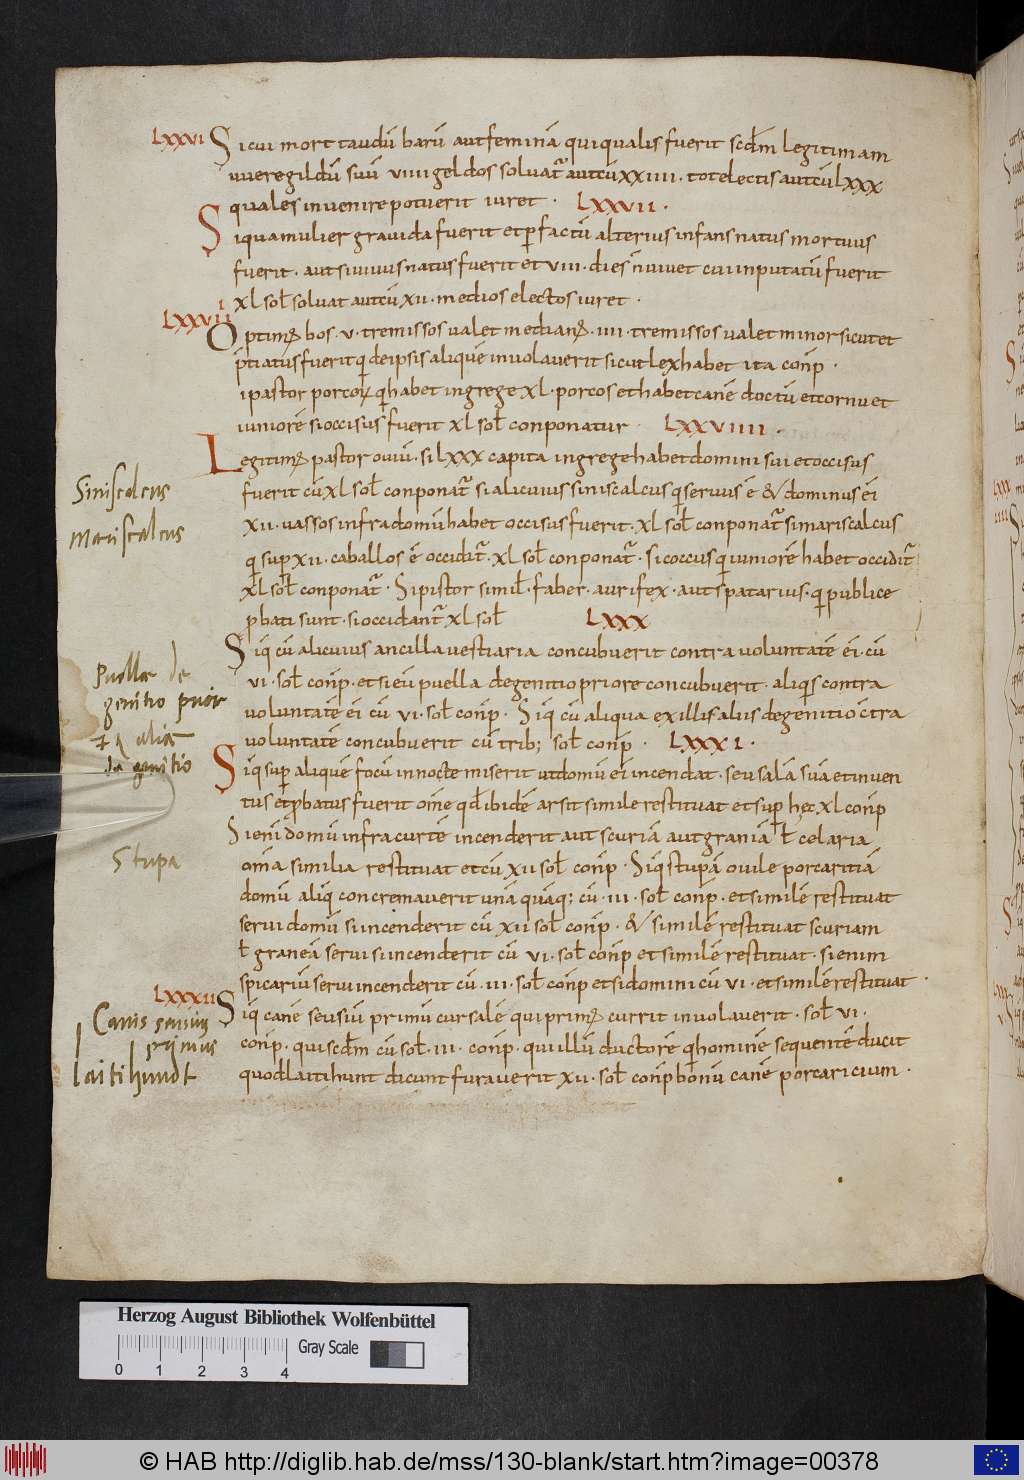 LXXVI Sicui mort taudū barū aut feminā qui qualis fuerit scđm legitimam
uueregildū suū viiii geldos soluat̄ aut cū xxiiii. tot electis aut cū lxxx
quales inuenire potuerit iuret. LXXVII.
Si qua mulier grauida fuerit et ꝑ factū alterius infans natus mortuus
fuerit. aut si uiuus natus fuerit et viii. dies n̄ uiuet cui inputatū fuerit
xl sol̄ soluat aut cū xii. medios electos iuret.
LXXVIII Optimꝰ bos. v. tremissos ualet medianꝰ. iiii. tremissos ualet minor sicut et
p̄tiatus fuerit q̄ de ipsis aliquē inuolauerit sicut lex habet ita con̄p.
i pastor porcoꝝ q̄ habet in grege xl. porcos et habet canē doctū et cornu et
iuniorē si occisus fuerit xl sol̄ conponatur LXXVIIII.
Legitimꝰ pastor ouiū. si lxxx capita in grege habet domini sui et occisus
fuerit cū xl sol̄ conponat̄ si alicuius siniscalcus q̄ seruus ē & dominus ei
xii. uassos infra domū habet occisus fuerit. xl sol̄ conponat̄ si mariscalcus
q̄ sup xii. caballos ē occidit̄. xl sol̄ conponat̄. si coccus q̄ iuniorē habet occidit̄
xl sol̄ conponat̄. Si pistor simil̄. faber. aurifex. aut spatarius. q̄ publice
ꝓbati sunt. si occidant̄ xl sol̄ LXXX
Siq̄ cū alicuius ancilla uestiaria concubuerit contra uoluntatē ei. cū
vi. sol̄ con̄p. et si eū puella de genitio priore concubuerit. aliq̄s contra
uoluntatē ei cū vi. sol̄ con̄p. Siq̄ cū aliqua ex illis aliis de genitio c̄tra
uoluntatē concubuerit cū trib; sol̄ con̄p. LXXXI.
Siq̄ sup aliquē focū in nocte miserit ut domū ei incendat. seu salā suā et inuen
tus et ꝓbatus fuerit om̄e qd̄ ibidē arsit simile restituat et sup hec xl con̄p
Si eni domū infra curtē incenderit aut scuriā aut graniā ł celaria
om̄a similia restituat et cū xii sol̄ con̄p. Siq̄ stupā ouile porcaritiā
domū aliq̄ concremauerit unā quāq; cū. iii. sol̄ con̄p. et similē restituat
serui domū si incenderit cū xii sol̄ con̄p. & similē restituat scuriam
ł graneā serui si incenderit cū vi. sol̄ con̄p et similē restituat. si enim
spicariū serui incenderit cū. iii. sol̄ con̄p et si domini cū vi. et similē restituat.
LXXXII Siq̄ canē seusiū primū cursalē qui primꝰ currit inuolauerit. sol̄ vi.
con̄p. qui scđm cū sol̄. iii. con̄p. qui illū ductorē q̄ hominē sequentē ducit
quod laitihunt dicunt furauerit xii. sol̄ con̄p bonū canē porcaricium.
Siniscalcus
Mariscalcus
Puella de
genitio prior
& alia
de genitio
Stupa
Canis seusius
primus
laitihundt
Herzog August Bibliothek Wolfenbüttel
Gray Scale
0 1 2 3 4
© HAB http://diglib.hab.de/mss/130-blank/start.htm?image=00378